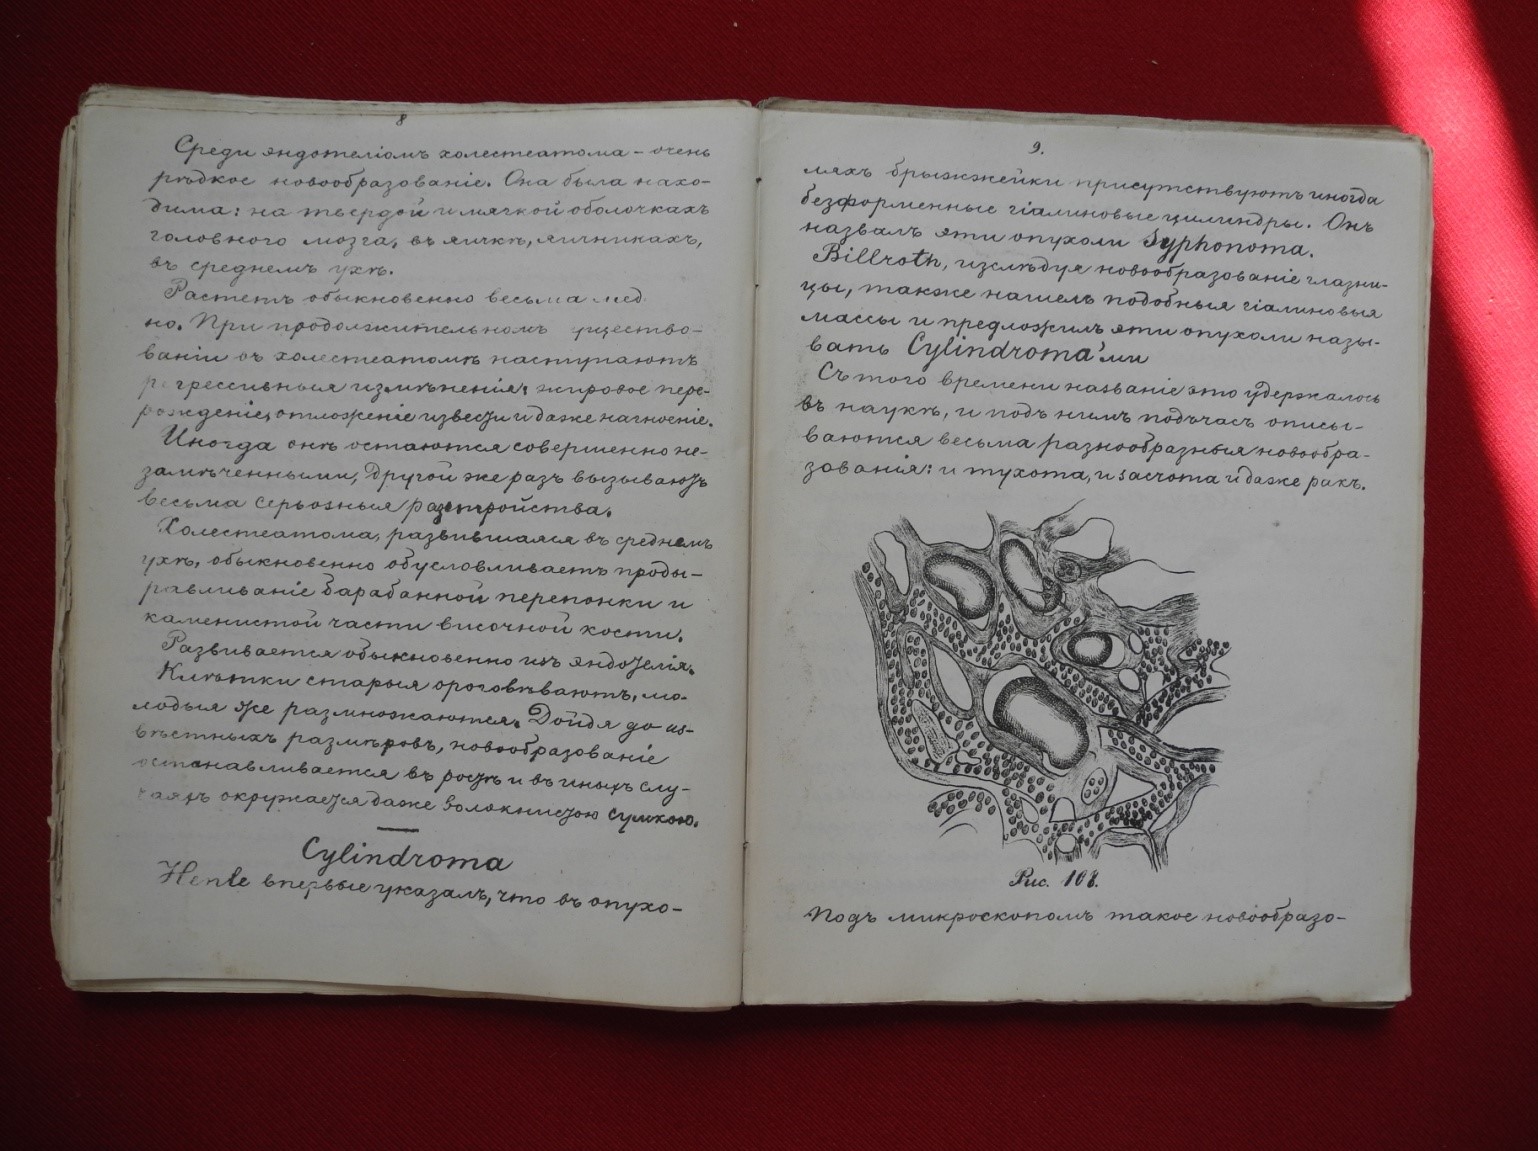 8
Среди эндотелiомъ холестеатома – очень
рѣдкое новообразованiе. Она была нахо-
дима: на твердой и мягкой оболочкахъ
головного мозга, въ яичкѣ, яичникахъ,
въ среднемъ ухѣ.
Растетъ обыкновенно весьма мед
но. При продолжительномъ ущество-
ванiи въ холестеатомѣ наступаютъ
регрессивныя измѣненiя: жировое пере-
рожденiе, отложенiе извести и даже нагноенiе.
Иногда онѣ остаются совершенно не-
замѣченными, другой же разъ вызываютъ
весьма серьозныя разстройства.
Холестеатома, развившаяся въ среднемъ
ухѣ, обыкновенно обусловливаетъ проды-
равливанiе барабанной перепонки и
каменистой части височной кости.
Развивается обыкновенно изъ эндотелiя.
Клѣтки старыя ороговѣваютъ, мо-
лодыя же размножаются. Дойдя до из-
вѣстныхъ размѣровъ, новообразованiе
останавливается въ ростѣ и въ иныхъ слу-
чаяхъ окружается даже волокнистою сумкою.
Cylindroma
Henle впервые указалъ, что въ опухо-
9.
ляхъ брыжжейки присутствуютъ иногда
безформенные гiалиновые цилиндры. Онъ
назвалъ эти опухоли Syphonoma.
Billroth, изслѣдуя новообразованiе глазни-
цы, также нашелъ подобныя гiалиновыя
массы и предложилъ эти опухоли назы-
вать Cylindroma'ми
Съ того времени названiе это удержалось
въ наукѣ, и подъ нимъ подъчасъ описы-
ваются весьма разнообразныя новообра-
зованiя: и myxoma, и sarcoma и даже ракъ.
Рис. 108.
Подъ микроскопомъ такое новообразо-